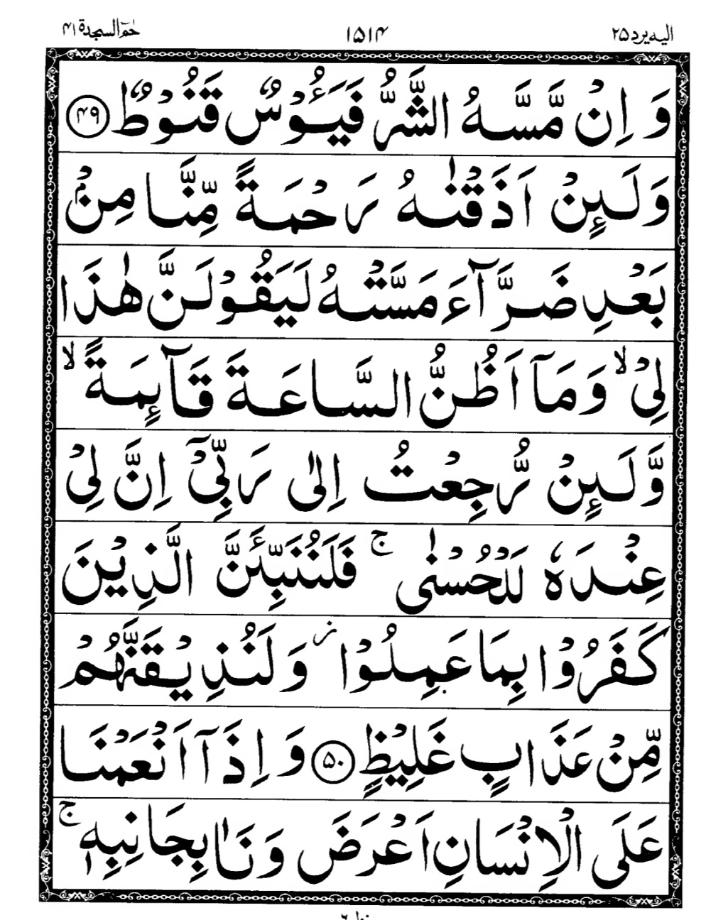 الیه یرد ۲۵ ۱۵۱۴ حٰمٓ السجدة ۴۱
وَ اِنْ مَّسَّهُ الشَّرُّ فَیَـُٔوْسٌ قَنُوْطٌ ﴿۴۹﴾
وَلَىِٕنْ اَذَقْنٰهُ رَحْمَةً مِّنَّا مِنْۢ
بَعْدِ ضَرَّآءَ مَسَّتْهُ لَیَقُوْلَنَّ هٰذَا
لِیْ ۙ وَمَاۤ اَظُنُّ السَّاعَةَ قَآىِٕمَةً ۙ
وَّلَىِٕنْ رُّجِعْتُ اِلٰی رَبِّیْۤ اِنَّ لِیْ
عِنْدَهٗ لَلْحُسْنٰی ۚ فَلَنُنَبِّئَنَّ الَّذِیْنَ
كَفَرُوْا بِمَا عَمِلُوْا ؗ وَلَنُذِیْقَنَّهُمْ
مِّنْ عَذَابٍ غَلِیْظٍ ﴿۵۰﴾ وَ اِذَاۤ اَنْعَمْنَا
عَلَی الْاِنْسَانِ اَعْرَضَ وَنَاٰ بِجَانِبِهٖ ۚ